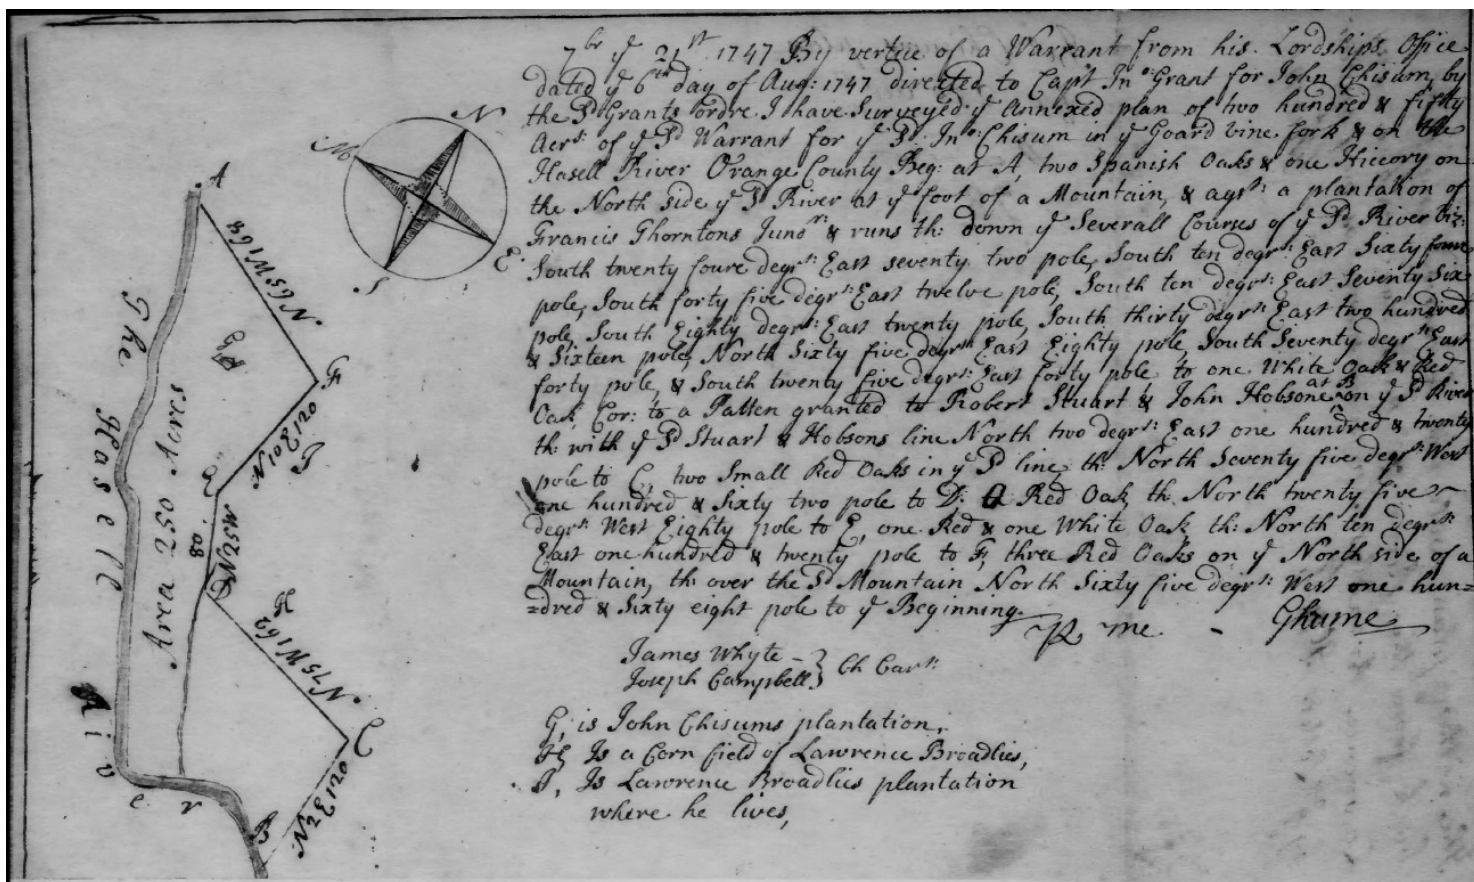 7br ye 21st 1747 By vertue of a Warrant from his Lordships Office
dated ye 6th day of Aug: 1747 directed to Capt Jno: Grant for John Chisum, by
the Sd Grants ordre I have Surveyed ye Annexed plan of two hundred & fifty
Acrs: of ye Sd Warrant for ye Sd Jno: Chisum in ye Goard vine fork & on the
Hasell River Orange County Beg: at A, two Spanish Oaks & one Hiccory on
the North Side ye Sd River at ye foot of a Mountain, & agst: a plantation of
Francis Thorntons Junor: & runs th: down ye Severall Courses of ye Sd River Viz:
South twenty foure degrs: East seventy two pole, South ten degrs: East Sixty foure
pole, South forty five degrs: East twelve pole, South ten degrs: East Seventy Six
pole, South Eighty degrs: East twenty pole, South thirty degrs: East two hundred
& Sixteen pole, North Sixty five degrs: East Eighty pole, South Seventy degrs: East
forty pole, & South twenty five degrs: East forty pole to one White Oak & Red
Oak, Cor: to a Patten granted to Robert Stuart & John Hobsone at B on ye Sd River
th: with ye Sd Stuart & Hobsons line North two degrs: East one hundred & twenty
pole to C, two Small Red Oaks in ye Sd line, th: North Seventy five degrs: West
one hundred & Sixty two pole to D: a Red Oak, th: North twenty five
degrs: West Eighty pole to E, one Red & one White Oak th: North ten degrs:
East one hundred & twenty pole to F, three Red Oaks on ye North side of a
Mountain, th: over the Sd Mountain North Sixty five degrs: West one hun=
=dred & Sixty eight pole to ye Beginning.
P me - GHume
James Whyte
Joseph Campbell } Ch Carrs:
G, is John Chisums plantation,
H, Is a Corn field of Lawrence Broadlies,
I, Is Lawrence Broadlies plantation
where he lives,
N
E
S
A
N. 65 W 168
F
G
N. 10 E 120
I
E
N 25 W
80
D
H
N. 75 W 162
C
N. 2 E 120
B
The Hasell River
Area 250 Acres